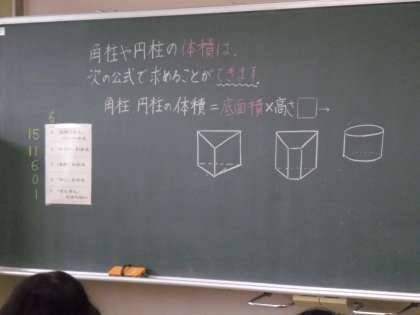 角柱や円柱の体積は、
次の公式で求めることができます
角柱 円柱の体積=底面積×高さ□→
15
11
6
0
1